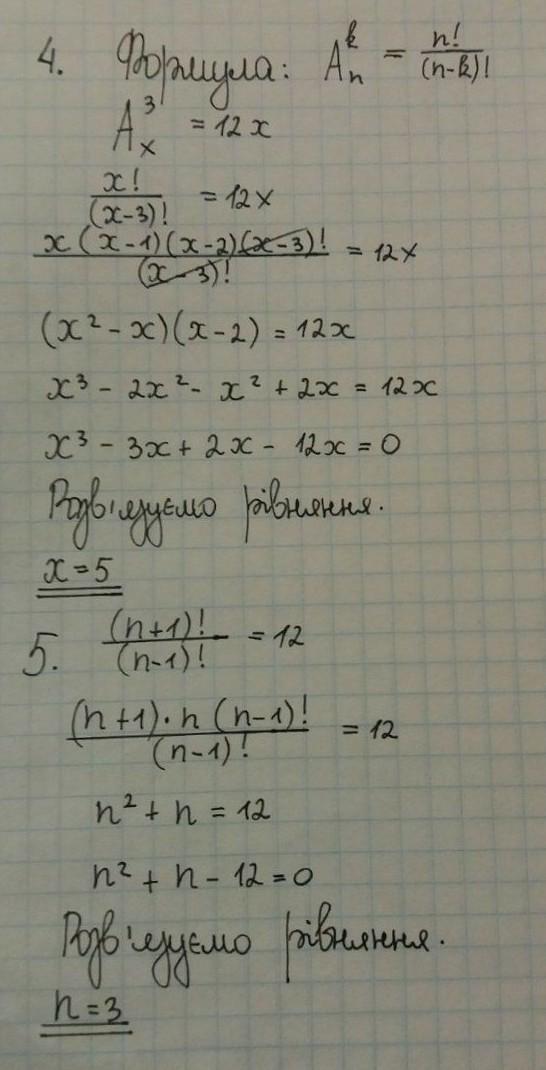 4. Формула: A_n^k = n!/(n-k)!
A_x^3 = 12x
x!/(x-3)! = 12x
x(x-1)(x-2)(x-3)!/(x-3)! = 12x
(x² - x)(x-2) = 12x
x³ - 2x² - x² + 2x = 12x
x³ - 3x + 2x - 12x = 0
Розв'язуємо рівняння.
x = 5
5. (n+1)!/(n-1)! = 12
(n+1)·n(n-1)!/(n-1)! = 12
n² + n = 12
n² + n - 12 = 0
Розв'язуємо рівняння.
n = 3